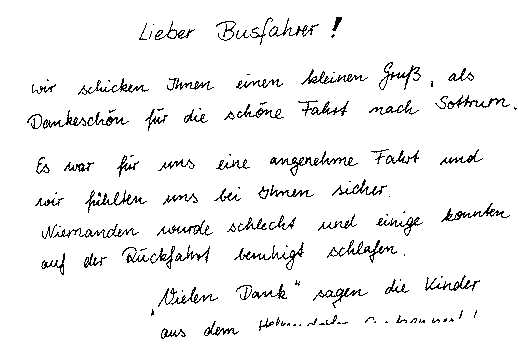 Lieber Busfahrer!
wir schicken Ihnen einen kleinen Gruß, als
Dankeschön für die schöne Fahrt nach Sottrum.
Es war für uns eine angenehme Fahrt und
wir fühlten uns bei Ihnen sicher.
Niemanden wurde schlecht und einige konnten
auf der Rückfahrt beruhigt schlafen.
"Vielen Dank" sagen die Kinder
aus dem